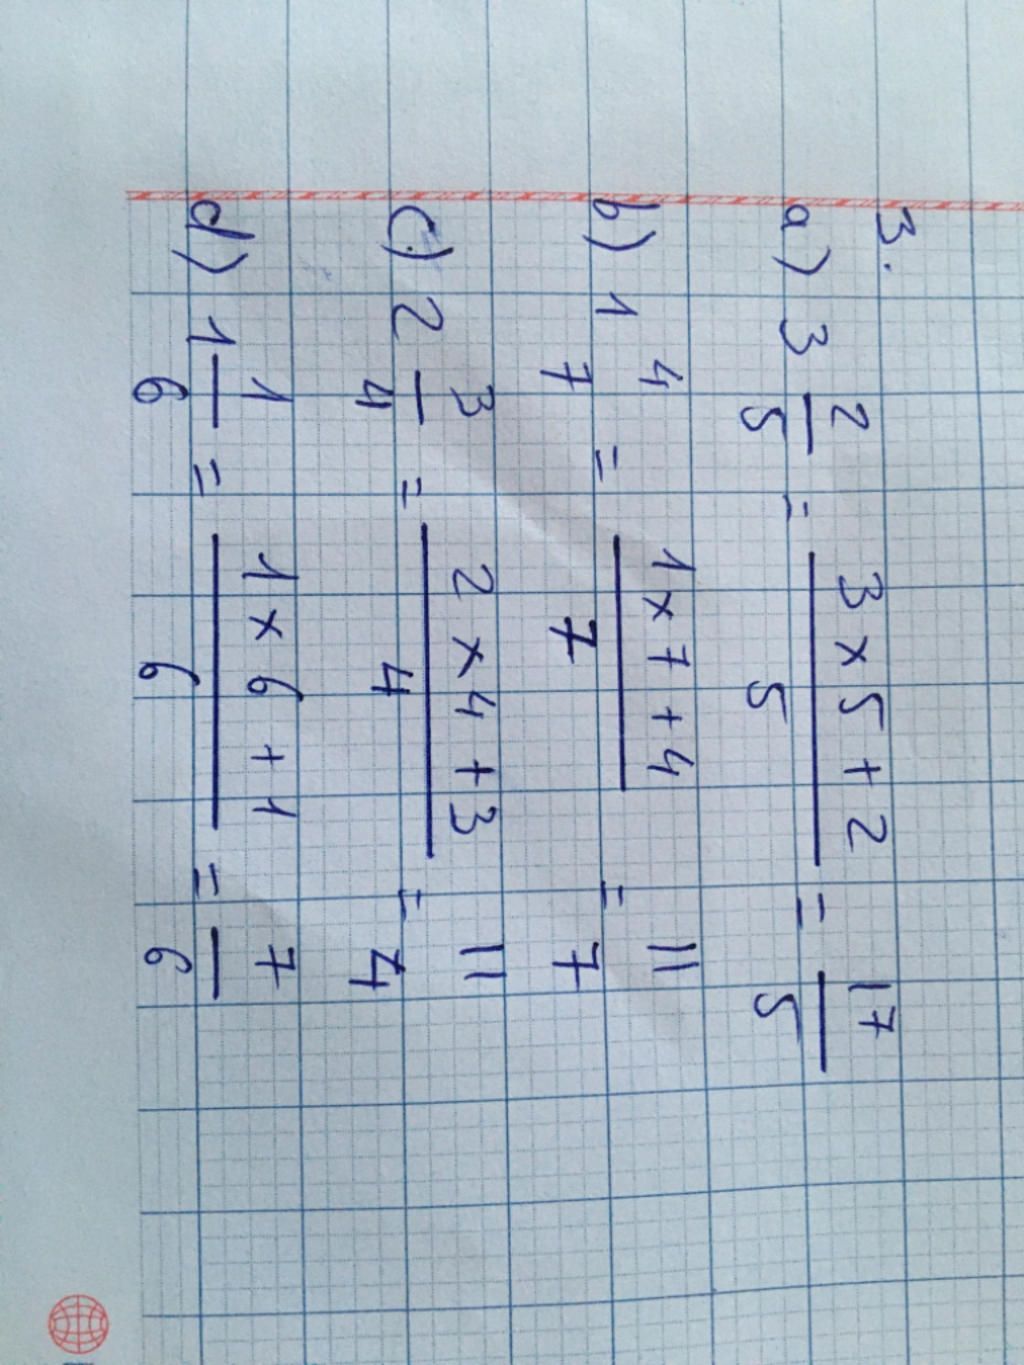 3.
a) 3 2/5 = (3 x 5 + 2)/5 = 17/5
b) 1 4/7 = (1 x 7 + 4)/7 = 11/7
c) 2 3/4 = (2 x 4 + 3)/4 = 11/4
d) 1 1/6 = (1 x 6 + 1)/6 = 7/6